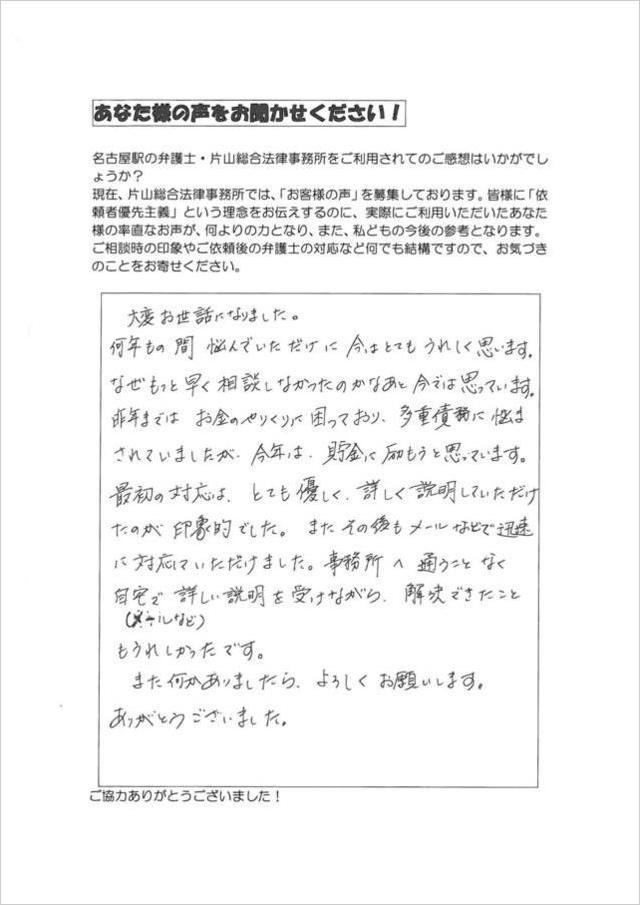 あなた様の声をお聞かせください！
名古屋駅の弁護士・片山総合法律事務所をご利用されてのご感想はいかがでし
ょうか？
現在、片山総合法律事務所では、「お客様の声」を募集しております。皆様に「依
頼者優先主義」という理念をお伝えするのに、実際にご利用いただいたあなた
様の率直なお声が、何よりの力となり、また、私どもの今後の参考となります。
ご相談時の印象やご依頼後の弁護士の対応など何でも結構ですので、お気づき
のことをお寄せください。
大変お世話になりました。
何年もの間 悩んでいただけに 今はとても うれしく思います。
なぜもっと早く相談しなかったのかなあと 今では思っています。
昨年までは お金のやりくりに困っており、多重債務に悩ま
されていましたが、今年は、貯金に励もうと思っています。
最初の対応は、とても優しく、詳しく説明していただけ
たのが 印象的でした。またその後もメールなどで迅速
に対応していただけました。事務所へ通うことなく
自宅で詳しい説明を受けながら、解決できたこと
(メールなど)
もうれしかったです。
また何かありましたら、よろしくお願いします。
ありがとうございました。
ご協力ありがとうございました！